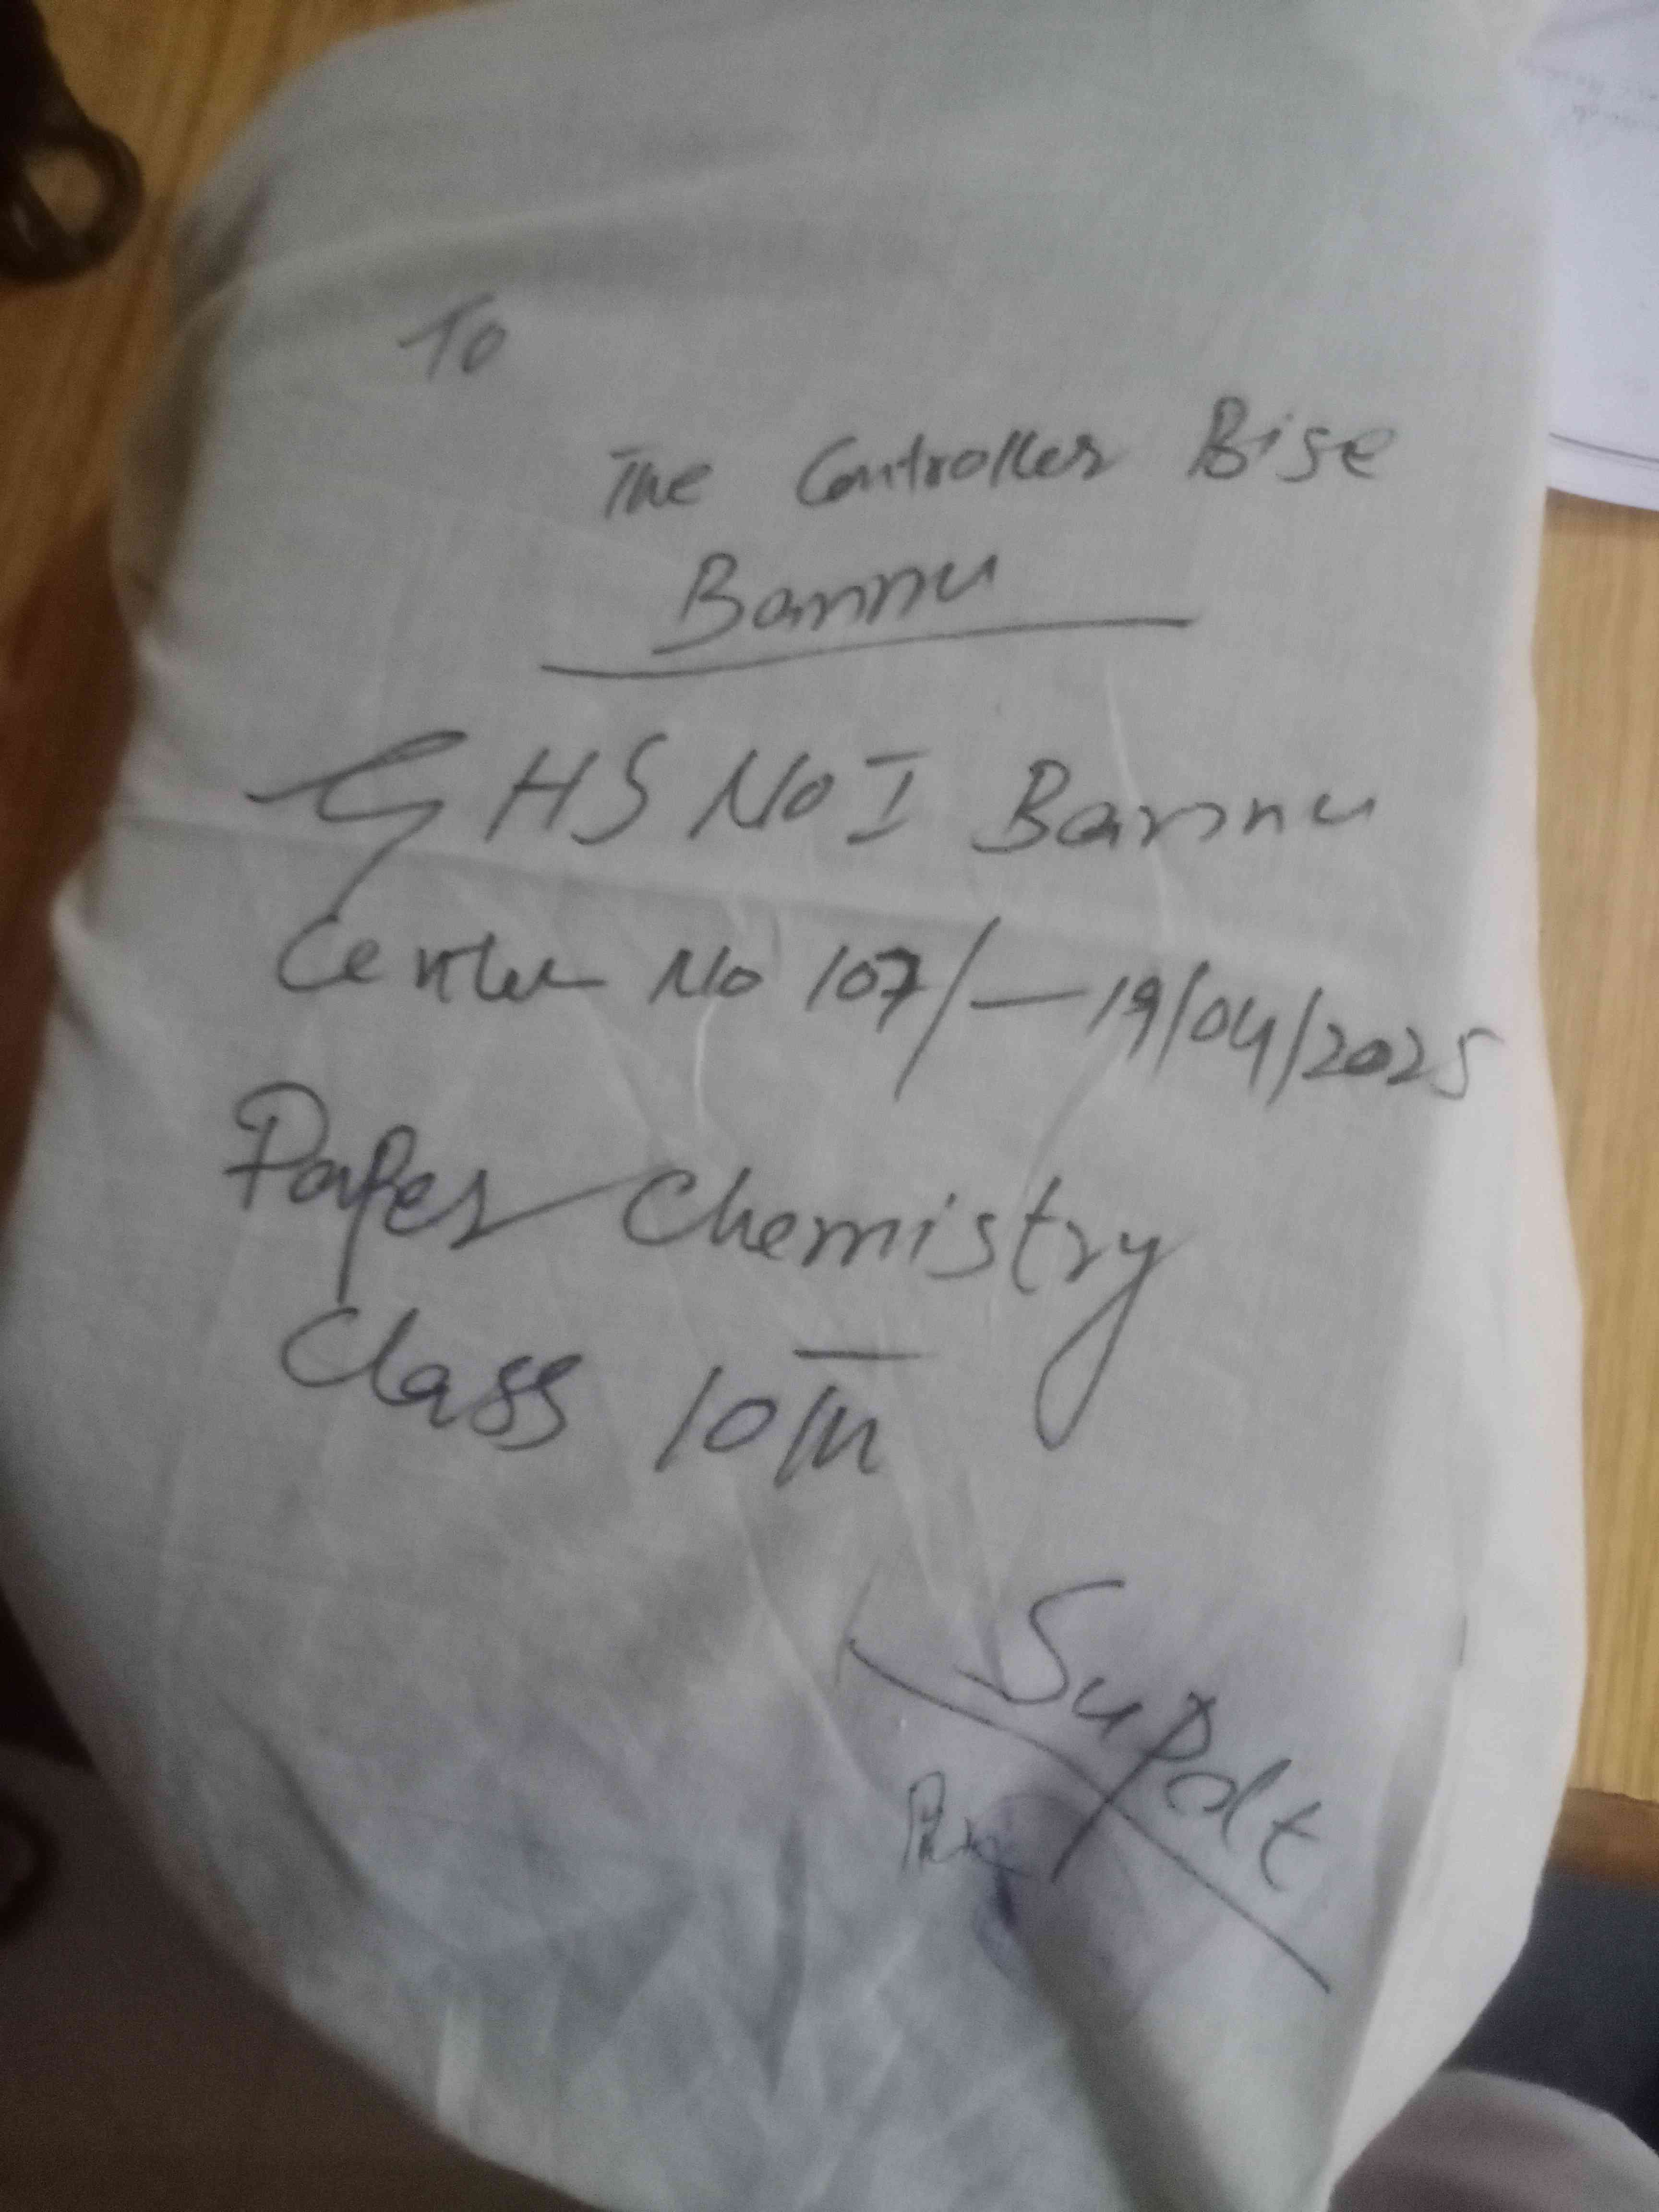 To
The Controller Bise
Bannu
GHS No I Bannu
Center No 107/—19/04/2025
Paper Chemistry
Class 10th
Supdt